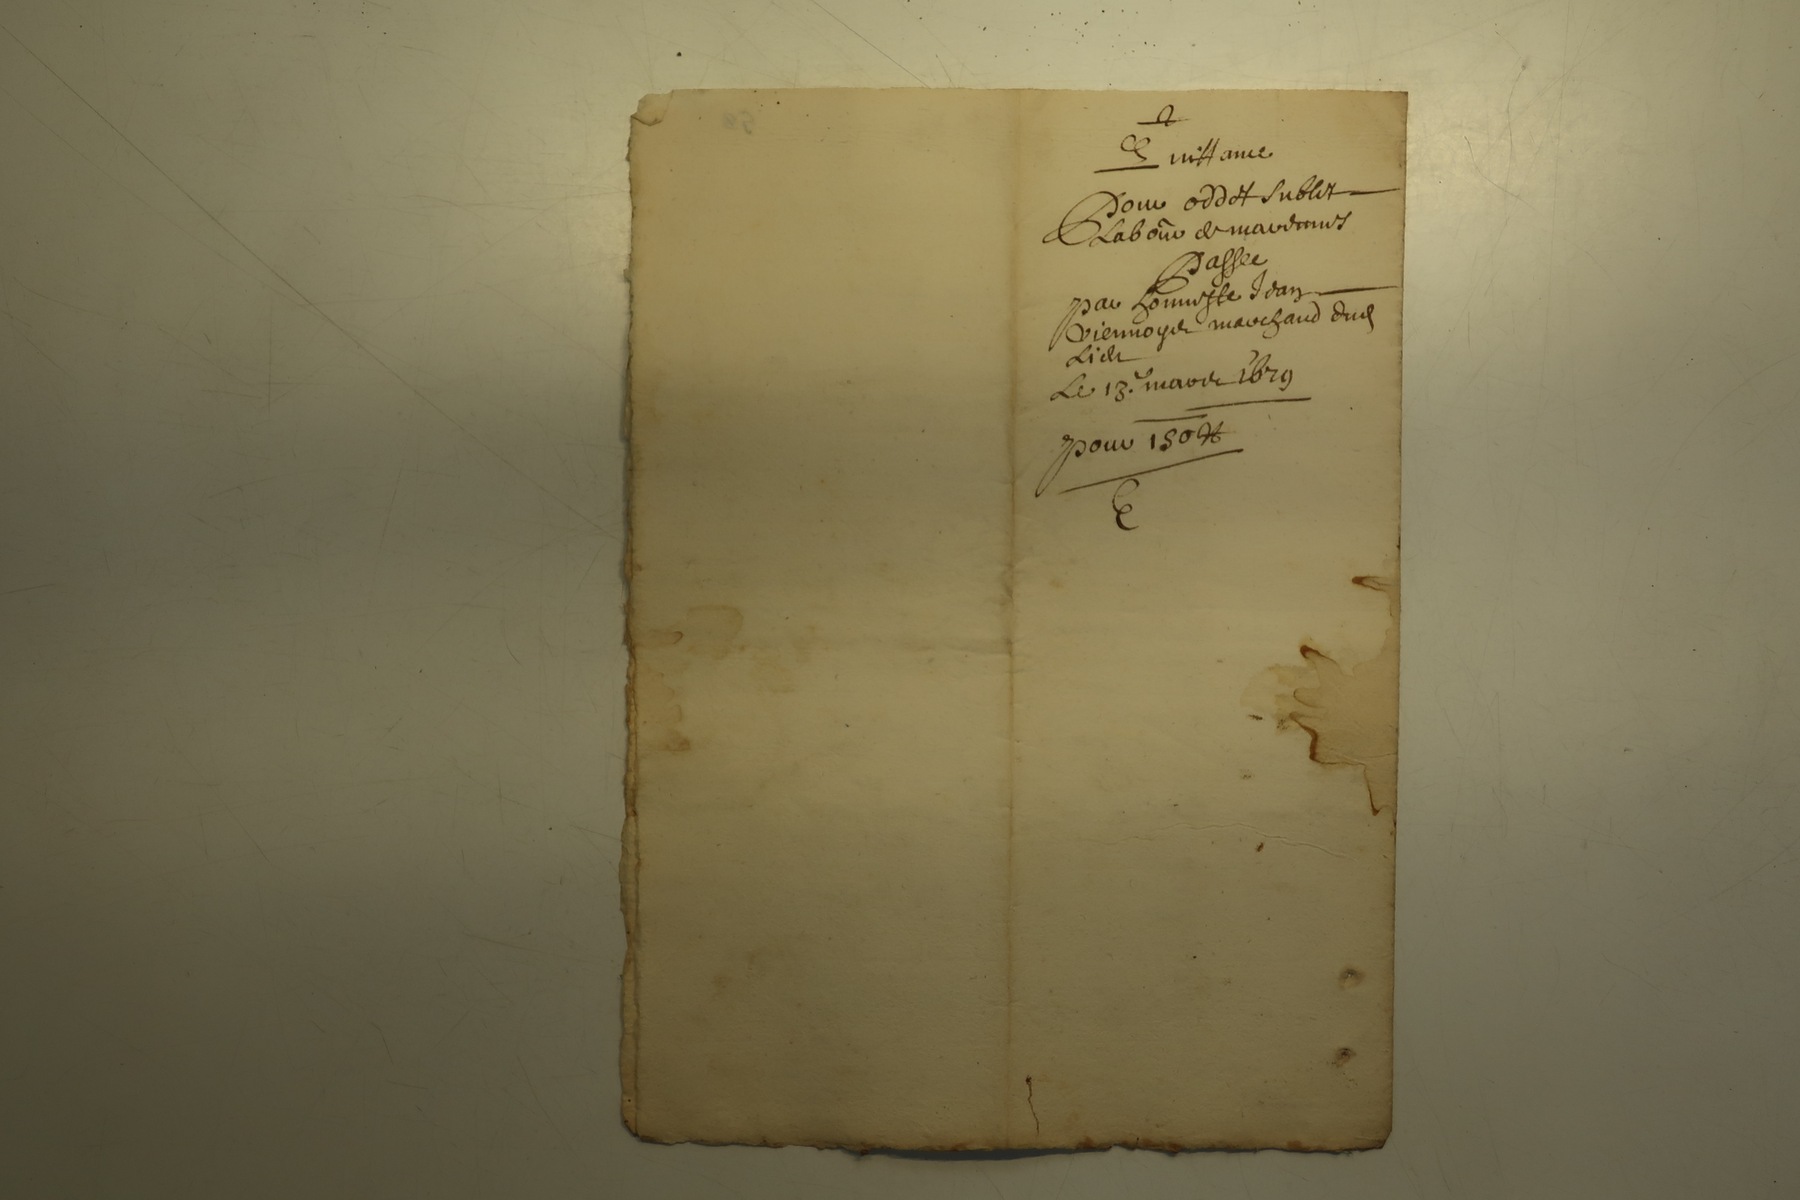 Quittance
Pour oddet Sublet
Labor̃ de
Passee
par honneste Jean
Viennoys marchand dud
Lieu
Le 13.e mars 1679
pour 150 ₶